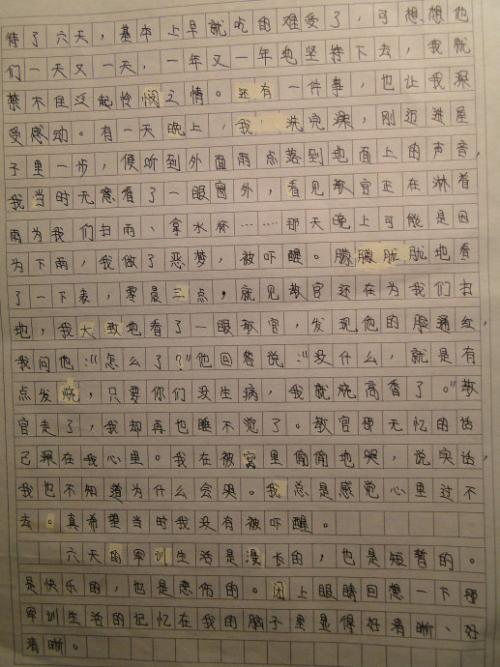 待了六天，基本上早就吃的难受了，可想想他
们一天又一天，一年又一年地坚持下去，我就
禁不住泛起怜悯之情。还有一件事，也让我深
受感动。有一天晚上，我洗完澡，刚迈进屋
子里一步，便听到外面雨点落到地面上的声音，
我当时无意看了一眼窗外，看见教官正在淋着
雨为我们扫雨、拿水杯……那天晚上可能是因
为下雨，我做了恶梦，被吓醒。朦朦胧胧地看
了一下表，零晨三点，就见教官还在为我们扫
地，我大致地看了一眼教官，发现他的脸通红，
我问他：“怎么了？”他回答说：“没什么，就是有
点发烧，只要你们没生病，我就烧高香了。”教
官走了，我却再也睡不觉了。教官无忆的话
已深在我心里。我在被窝里偷偷地哭，说实话，
我也不知道为什么会哭。我总是感觉心里过不
去。真希望当时我没有被吓醒。
六天的军训生活是漫长的，也是短暂的。
是快乐的，也是悲伤的。闭上眼睛回想一下那
军训生活的记忆在我的脑子里显得好清晰、好
清晰。